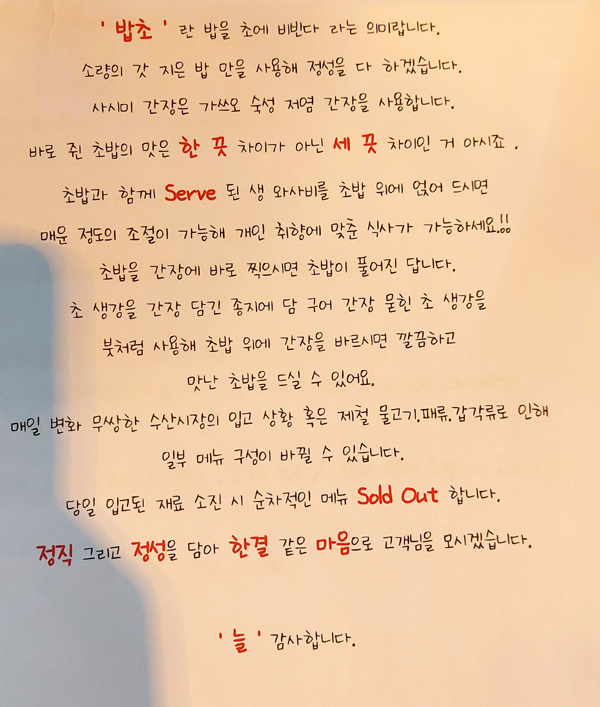 ' 밥초 ' 란 밥을 초에 비빈다 라는 의미랍니다.
소량의 갓 지은 밥 만을 사용해 정성을 다 하겠습니다.
사시미 간장은 가쓰오 숙성 저염 간장을 사용합니다.
바로 쥔 초밥의 맛은 한 끗 차이가 아닌 세 끗 차이인 거 아시죠 .
초밥과 함께 Serve 된 생 와사비를 초밥 위에 얹어 드시면
매운 정도의 조절이 가능해 개인 취향에 맞춘 식사가 가능하세요!!
초밥을 간장에 바로 찍으시면 초밥이 풀어진 답니다.
초 생강을 간장 담긴 종지에 담 구어 간장 묻힌 초 생강을
붓처럼 사용해 초밥 위에 간장을 바르시면 깔끔하고
맛난 초밥을 드실 수 있어요.
매일 변화 무쌍한 수산시장의 입고 상황 혹은 제철 물고기.패류.갑각류로 인해
일부 메뉴 구성이 바뀔 수 있습니다.
당일 입고된 재료 소진 시 순차적인 메뉴 Sold Out 합니다.
정직 그리고 정성을 담아 한결 같은 마음으로 고객님을 모시겠습니다.
' 늘 ' 감사합니다.